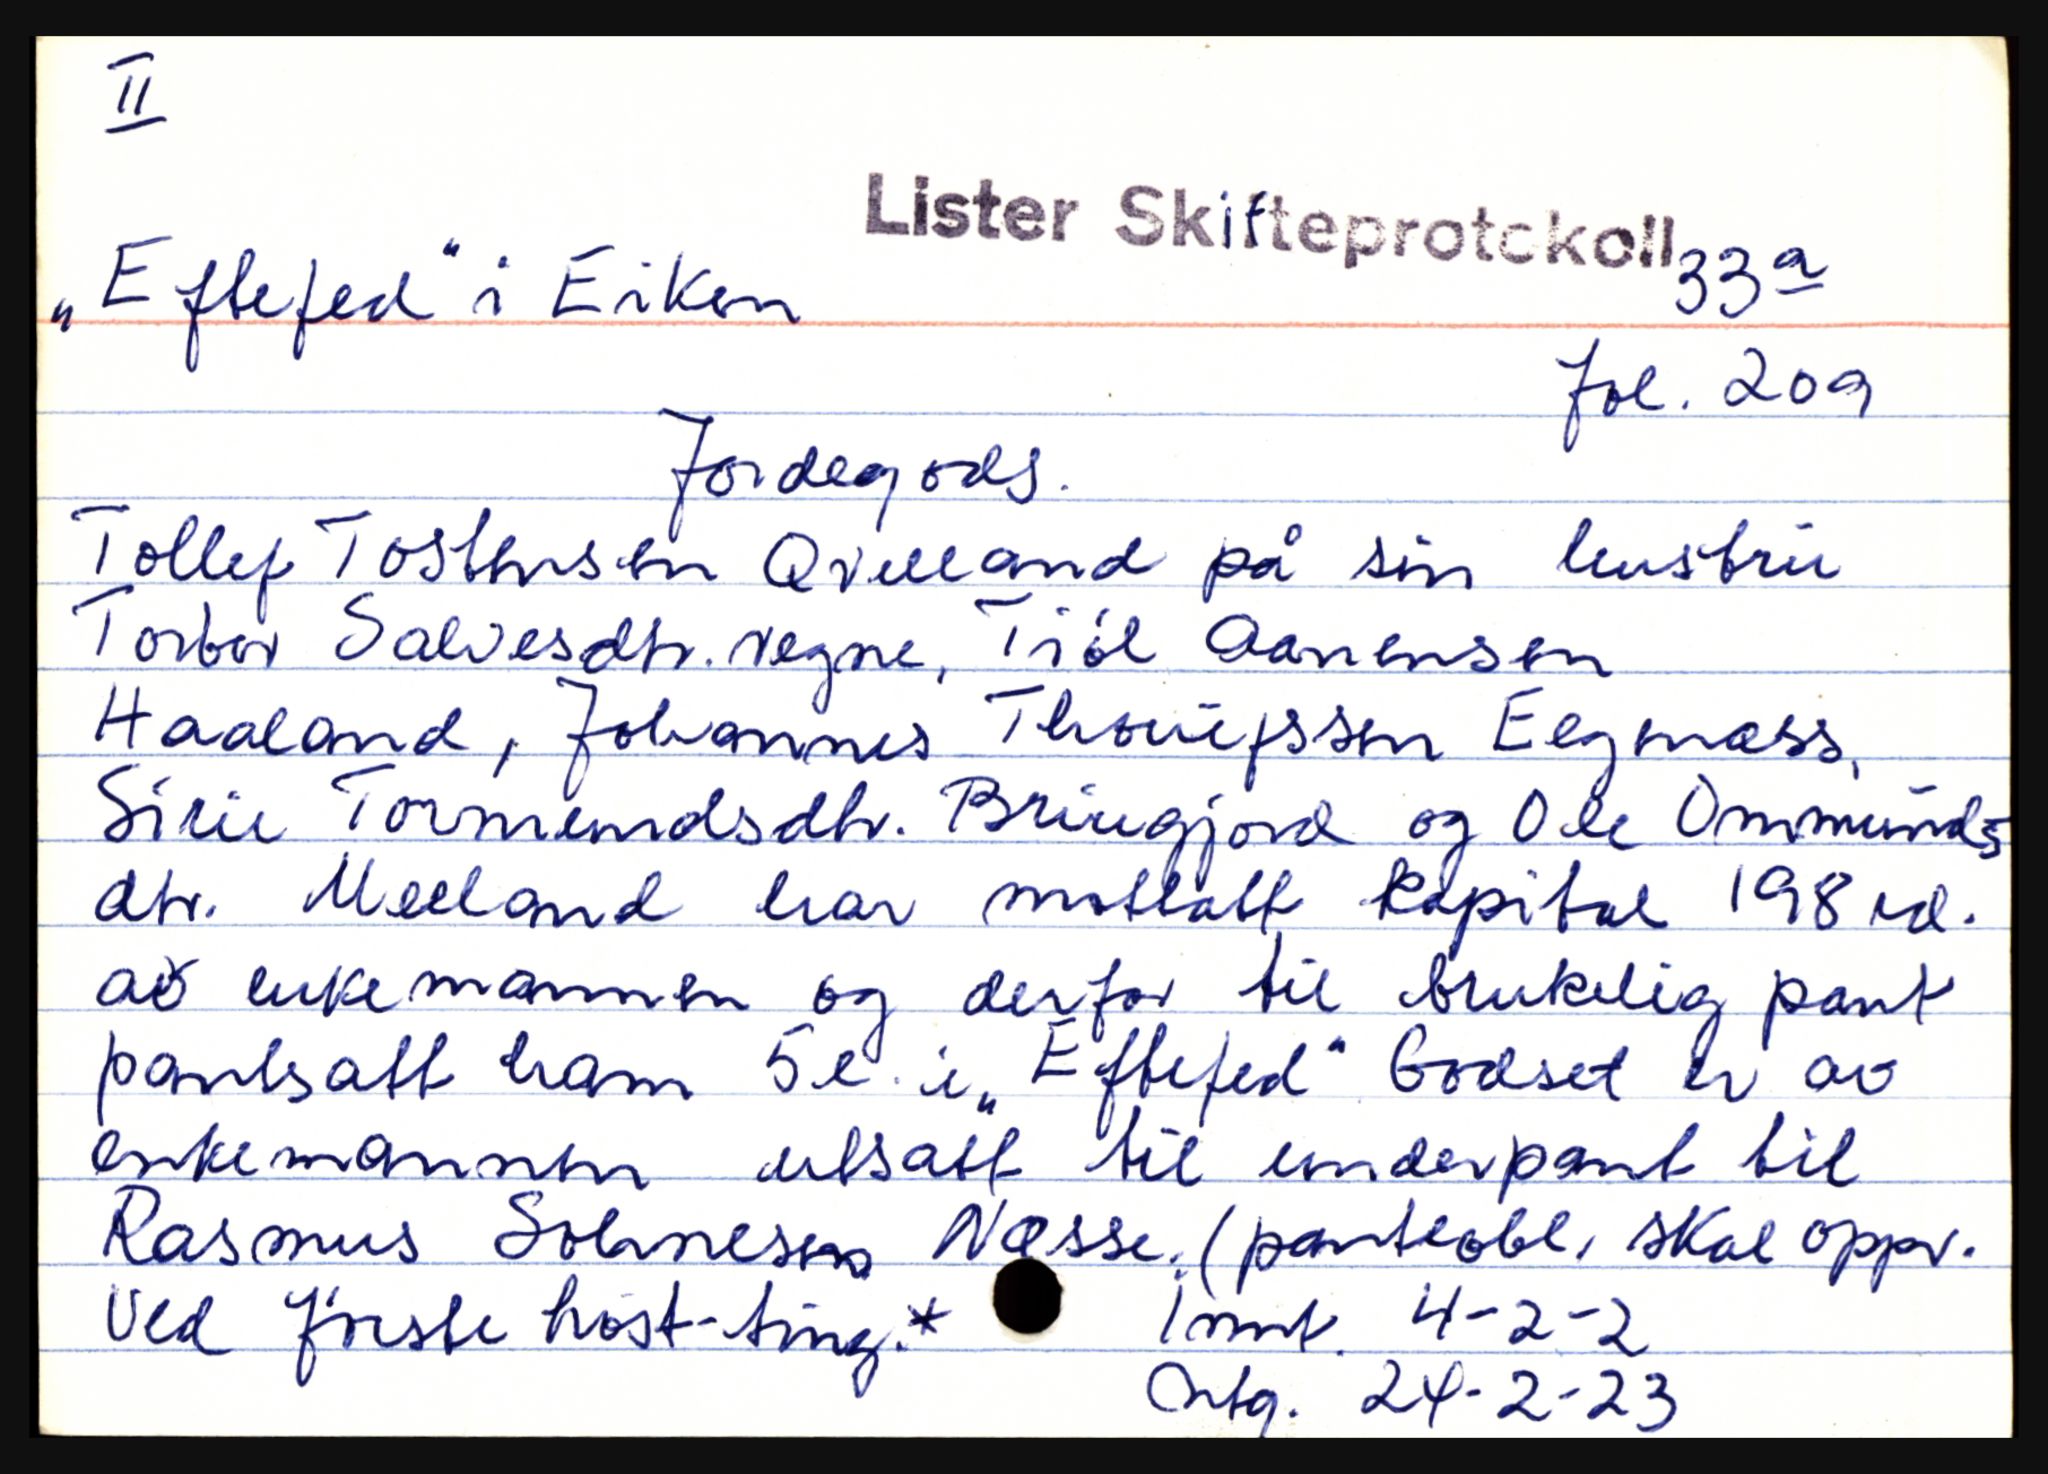 II
Lister Skifteprotokoll 33a
„Eftefed" i Eiken
fol. 209
Jordegods.
Tollef Tostensen Qvelland på sin hustru
Torbor Salvesdtr. vegne, Tiól Aanensen
Haaland, Johannes Thorufssen Eegenæss,
Sirie Tormundsdtr. Bringjord og Ole Ommunds
dtr. Meeland har mottatt kapital 198 rd.
av enkemannen og derfor til brukelig pant
pantsatt ham 5 e. i „Eftefed" Godset er av
enkemannen utsatt til underpant til
Rasmus Solvnesen Næsse. (panteobl. skal oppr.
ved første høst-ting.*
Innt. 4-2-2
Utg. 24-2-23